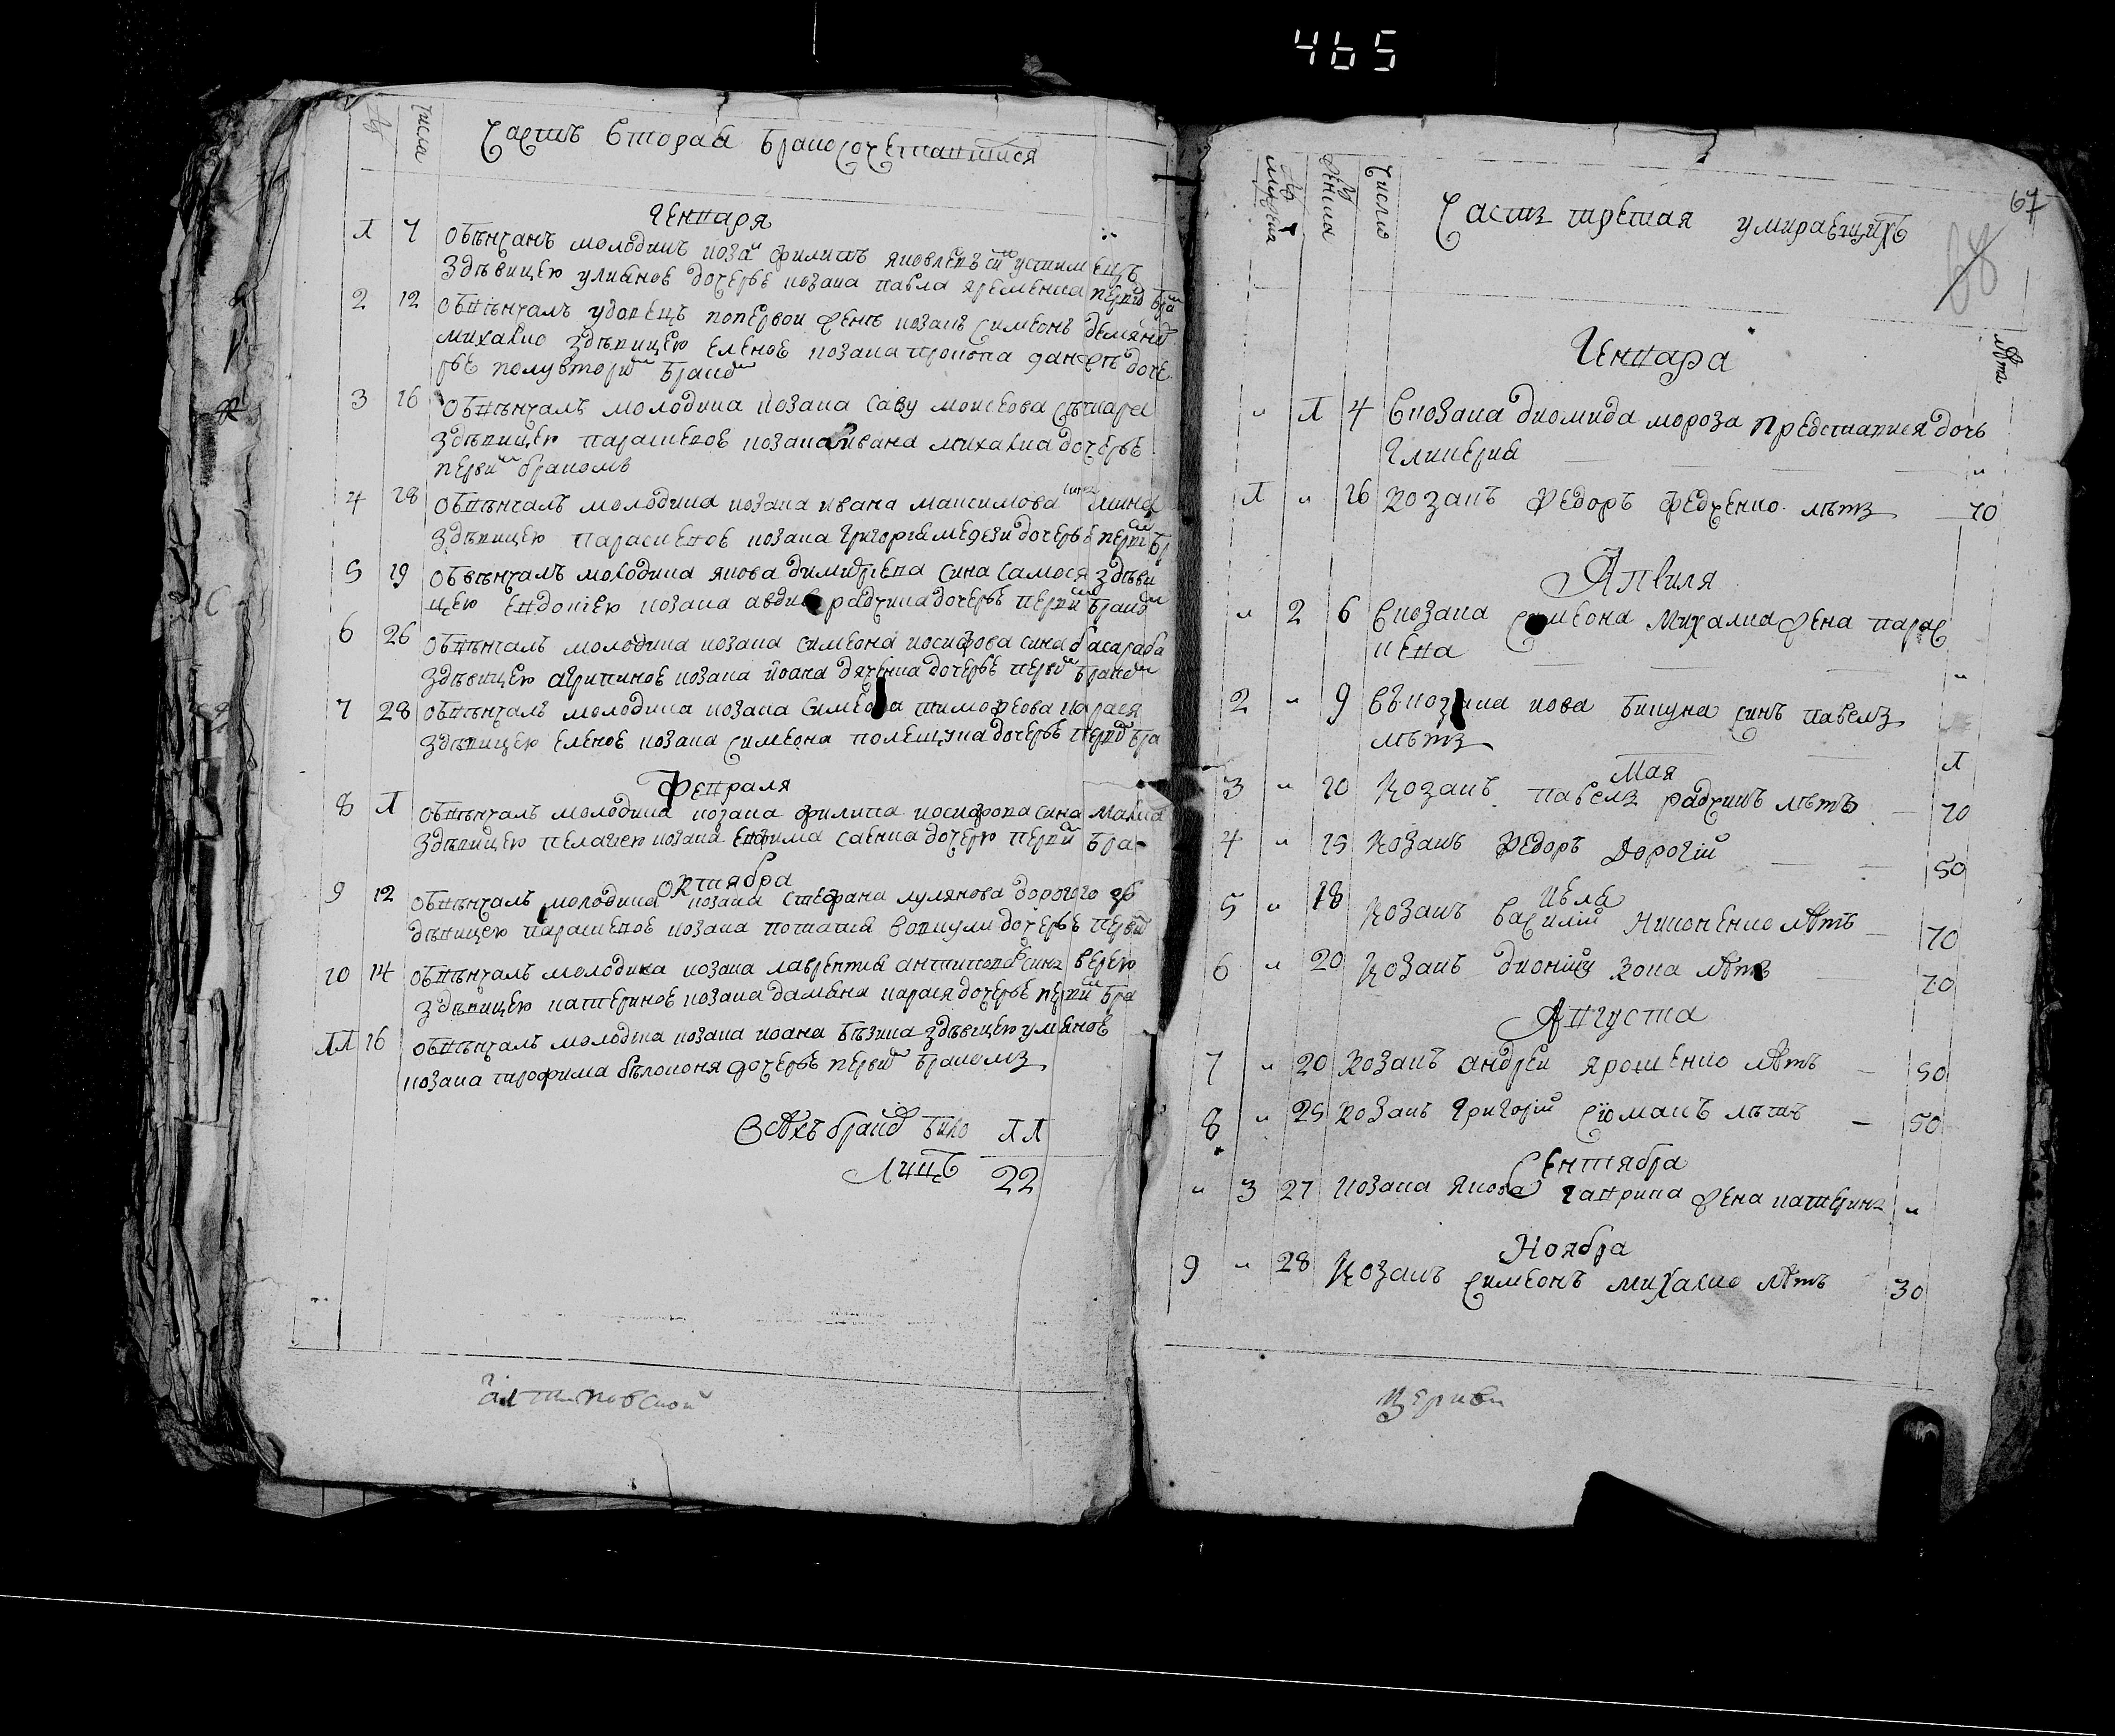 465
Часть Вторая Бракосочетавшися
числа
Генваря
1 7 обвѣнчанъ молодикъ коза филипъ яковлевъ устим енъ
здѣвицею улианое дочерье козака павла яременка первы бра
2 12 обвѣнчалъ удовецъ попервой женѣ козакъ симеонъ демяно
михалко здѣвицею еленое козака прокопа доче
рье полувтори брако
3 16 обвѣнчалъ молодика козака саву моисеова
здѣвицею параскевое козака ивана михалка дочерье
перви бракомъ
4 18 обвѣнчалъ молодика козака ивана максимова сина
здѣвицею параскевое козака григория дочерье перви бр
5 19 обвѣнчалъ молодика якова димитриева сина самося здѣви
цею евдокіею козака авдия радчика дочерье перви брако
6 26 обвѣнчалъ молодика козака симеона иосифова сина басараба
здѣвицею агрипиное козака иоана дяченка дочерье перви брако
7 28 обвѣнчалъ молодика козака симеона тимофеова карася
здѣвицею еленое козака симеона полещука дочерье перво бра
Февраля
8 1 обвѣнчалъ молодика козака филипа иосифова сина
здѣвицею пелагіею козака ефима саенка дочерю перви бра
октября
9 12 обвѣнчалъ молодика козака стефана лулянова дорогого з
дѣвицею параскевое козака потапия дочерье перви
10 14 обвѣнчалъ молодика козака лаврентия антипова сина
здѣвицею катериное козака дамяна карася дочерье перви бра
11 16 обвѣнчалъ молодика козака иоана бѣзика здѣвицею улияное
козака трофима бѣлоконя дочерье перви бракомъ
Всѣхъ брако было 11
Лицъ 22
67
68
Часть третая умираещихъ
мужеска женска число лѣтъ
Генваря
" 1 4 Вкозака диомида мороза преставися дочь
гликерия "
1 " 16 Козакъ федоръ федченко лѣтъ 70
Априля
" 2 6 Вкозака симеона михалка жена парас
кева "
2 " 9 Въ козака иова бикуна синъ павелъ
лѣтъ 1
Мая
3 " 10 Козакъ павелъ радчикъ лѣтъ 70
4 " 15 Козакъ федоръ дорогій 50
Июля
5 " 18 Козакъ василій никоненко лѣтъ 70
6 " 20 Козакъ дионисій лѣтъ 70
Августа
7 " 20 Козакъ андрей ярошенко лѣтъ 50
8 " 25 Козакъ григорій лѣтъ 50
Сентября
" 3 27 Козака якова гаврика жена катерина "
Ноября
9 " 28 Козакъ симеонъ михалко лѣтъ 30
церкви